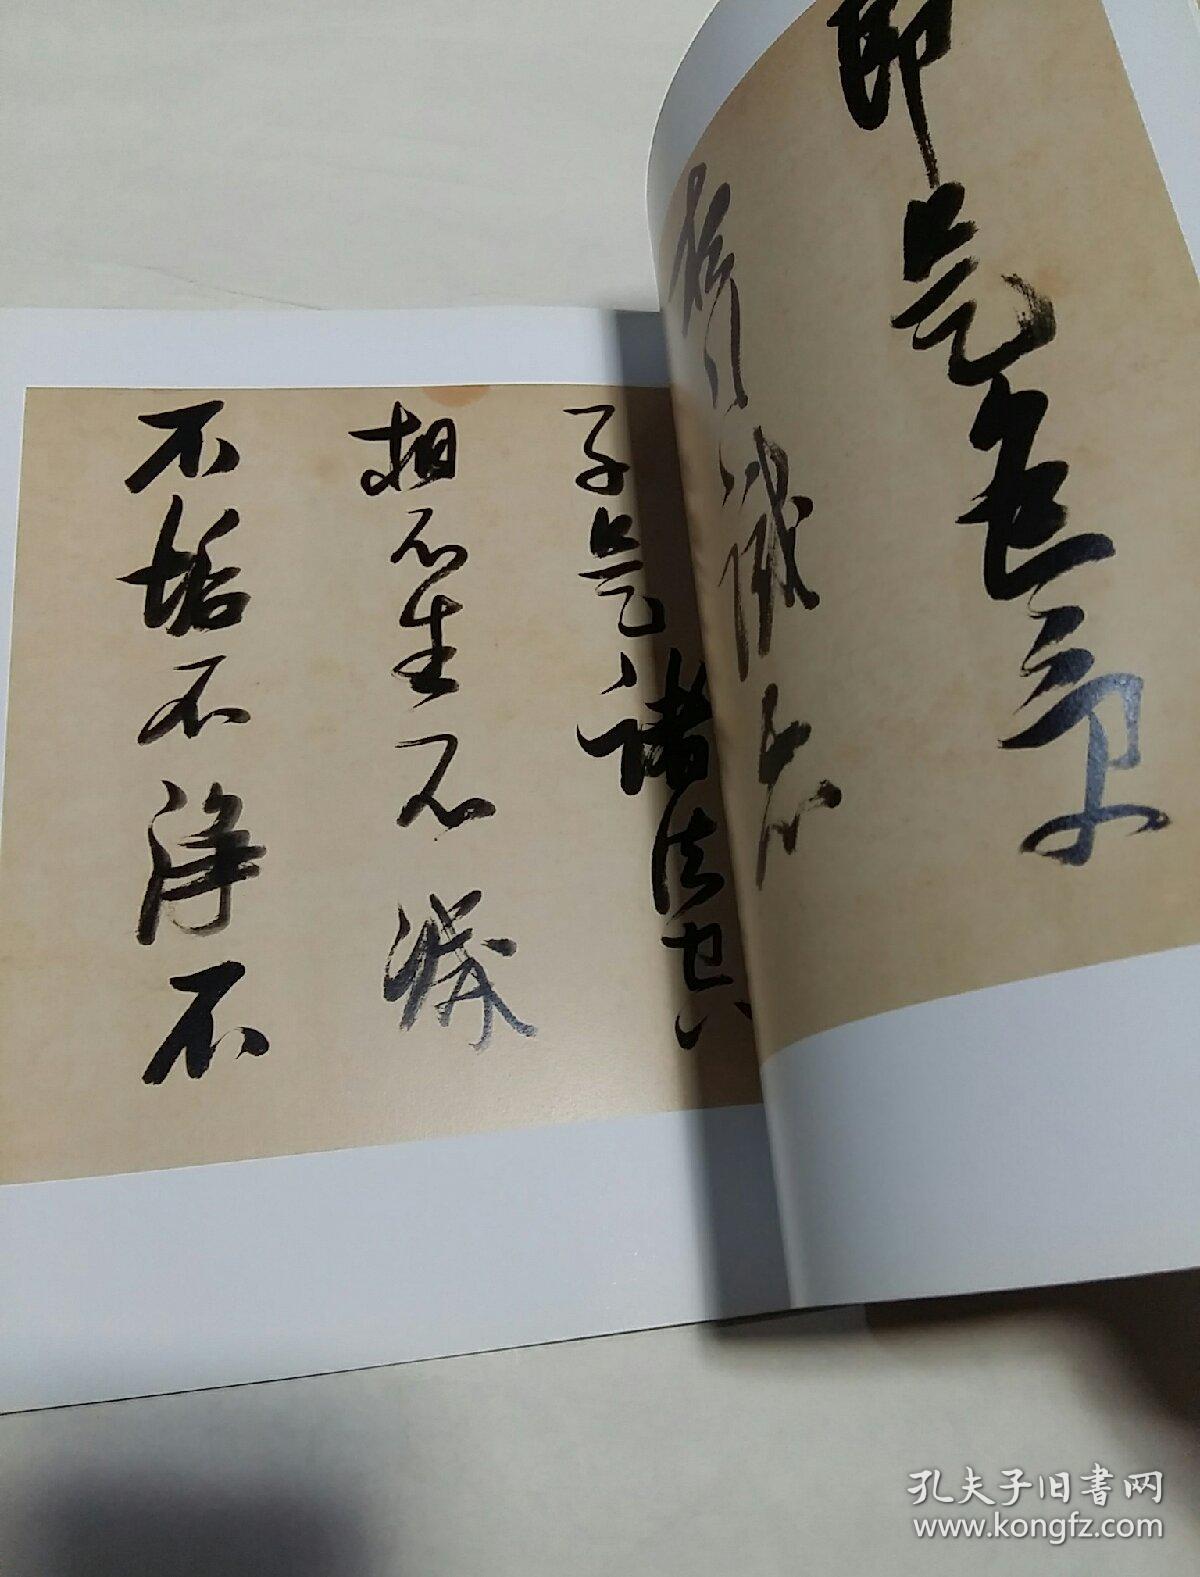 即是色受
行識亦
子是諸法空
相不生不滅
不垢不淨不
孔夫子旧書网
www.kongfz.com